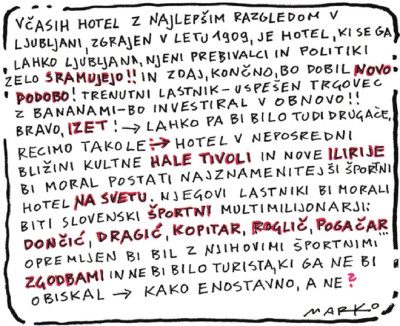 VČASIH HOTEL Z NAJLEPŠIM RAZGLEDOM V
LJUBLJANI, ZGRAJEN V LETU 1909, JE HOTEL, KI SE GA
LAHKO LJUBLJANA, NJENI PREBIVALCI IN POLITIKI
ZELO SRAMUJEJO!! IN ZDAJ, KONČNO, BO DOBIL NOVO
PODOBO! TRENUTNI LASTNIK - USPEŠEN TRGOVEC
Z BANANAMI - BO INVESTIRAL V OBNOVO!!
BRAVO, IZET! → LAHKO PA BI BILO TUDI DRUGAČE,
RECIMO TAKOLE → HOTEL V NEPOSREDNI
BLIŽINI KULTNE HALE TIVOLI IN NOVE ILIRIJE
BI MORAL POSTATI NAJZNAMENITEJŠI ŠPORTNI
HOTEL NA SVETU. NJEGOVI LASTNIKI BI MORALI
BITI SLOVENSKI ŠPORTNI MULTIMILIJONARJI:
DONČIĆ, DRAGIĆ, KOPITAR, ROGLIČ, POGAČAR...
OPREMLJEN BI BIL Z NJIHOVIMI ŠPORTNIMI
ZGODBAMI IN NE BI BILO TURISTA, KI GA NE BI
OBISKAL → KAKO ENOSTAVNO, A NE?
MARKO